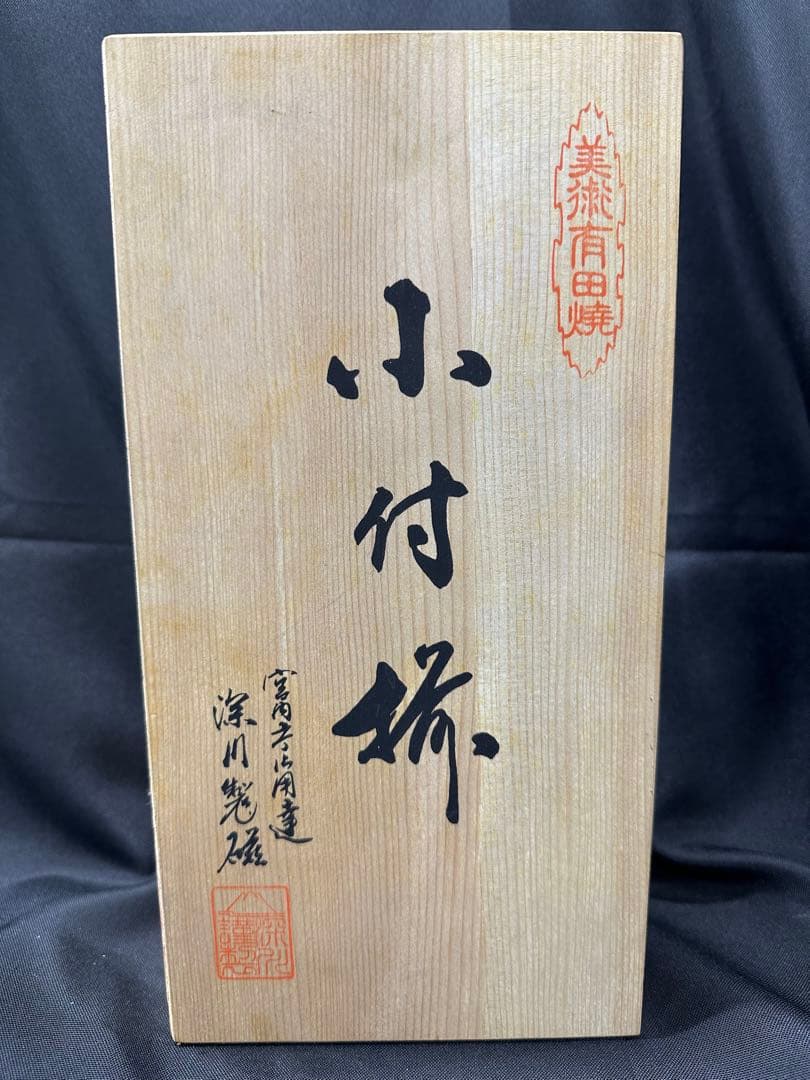 美術有田燒
小付揃
宮内庁御用達
深川製磁